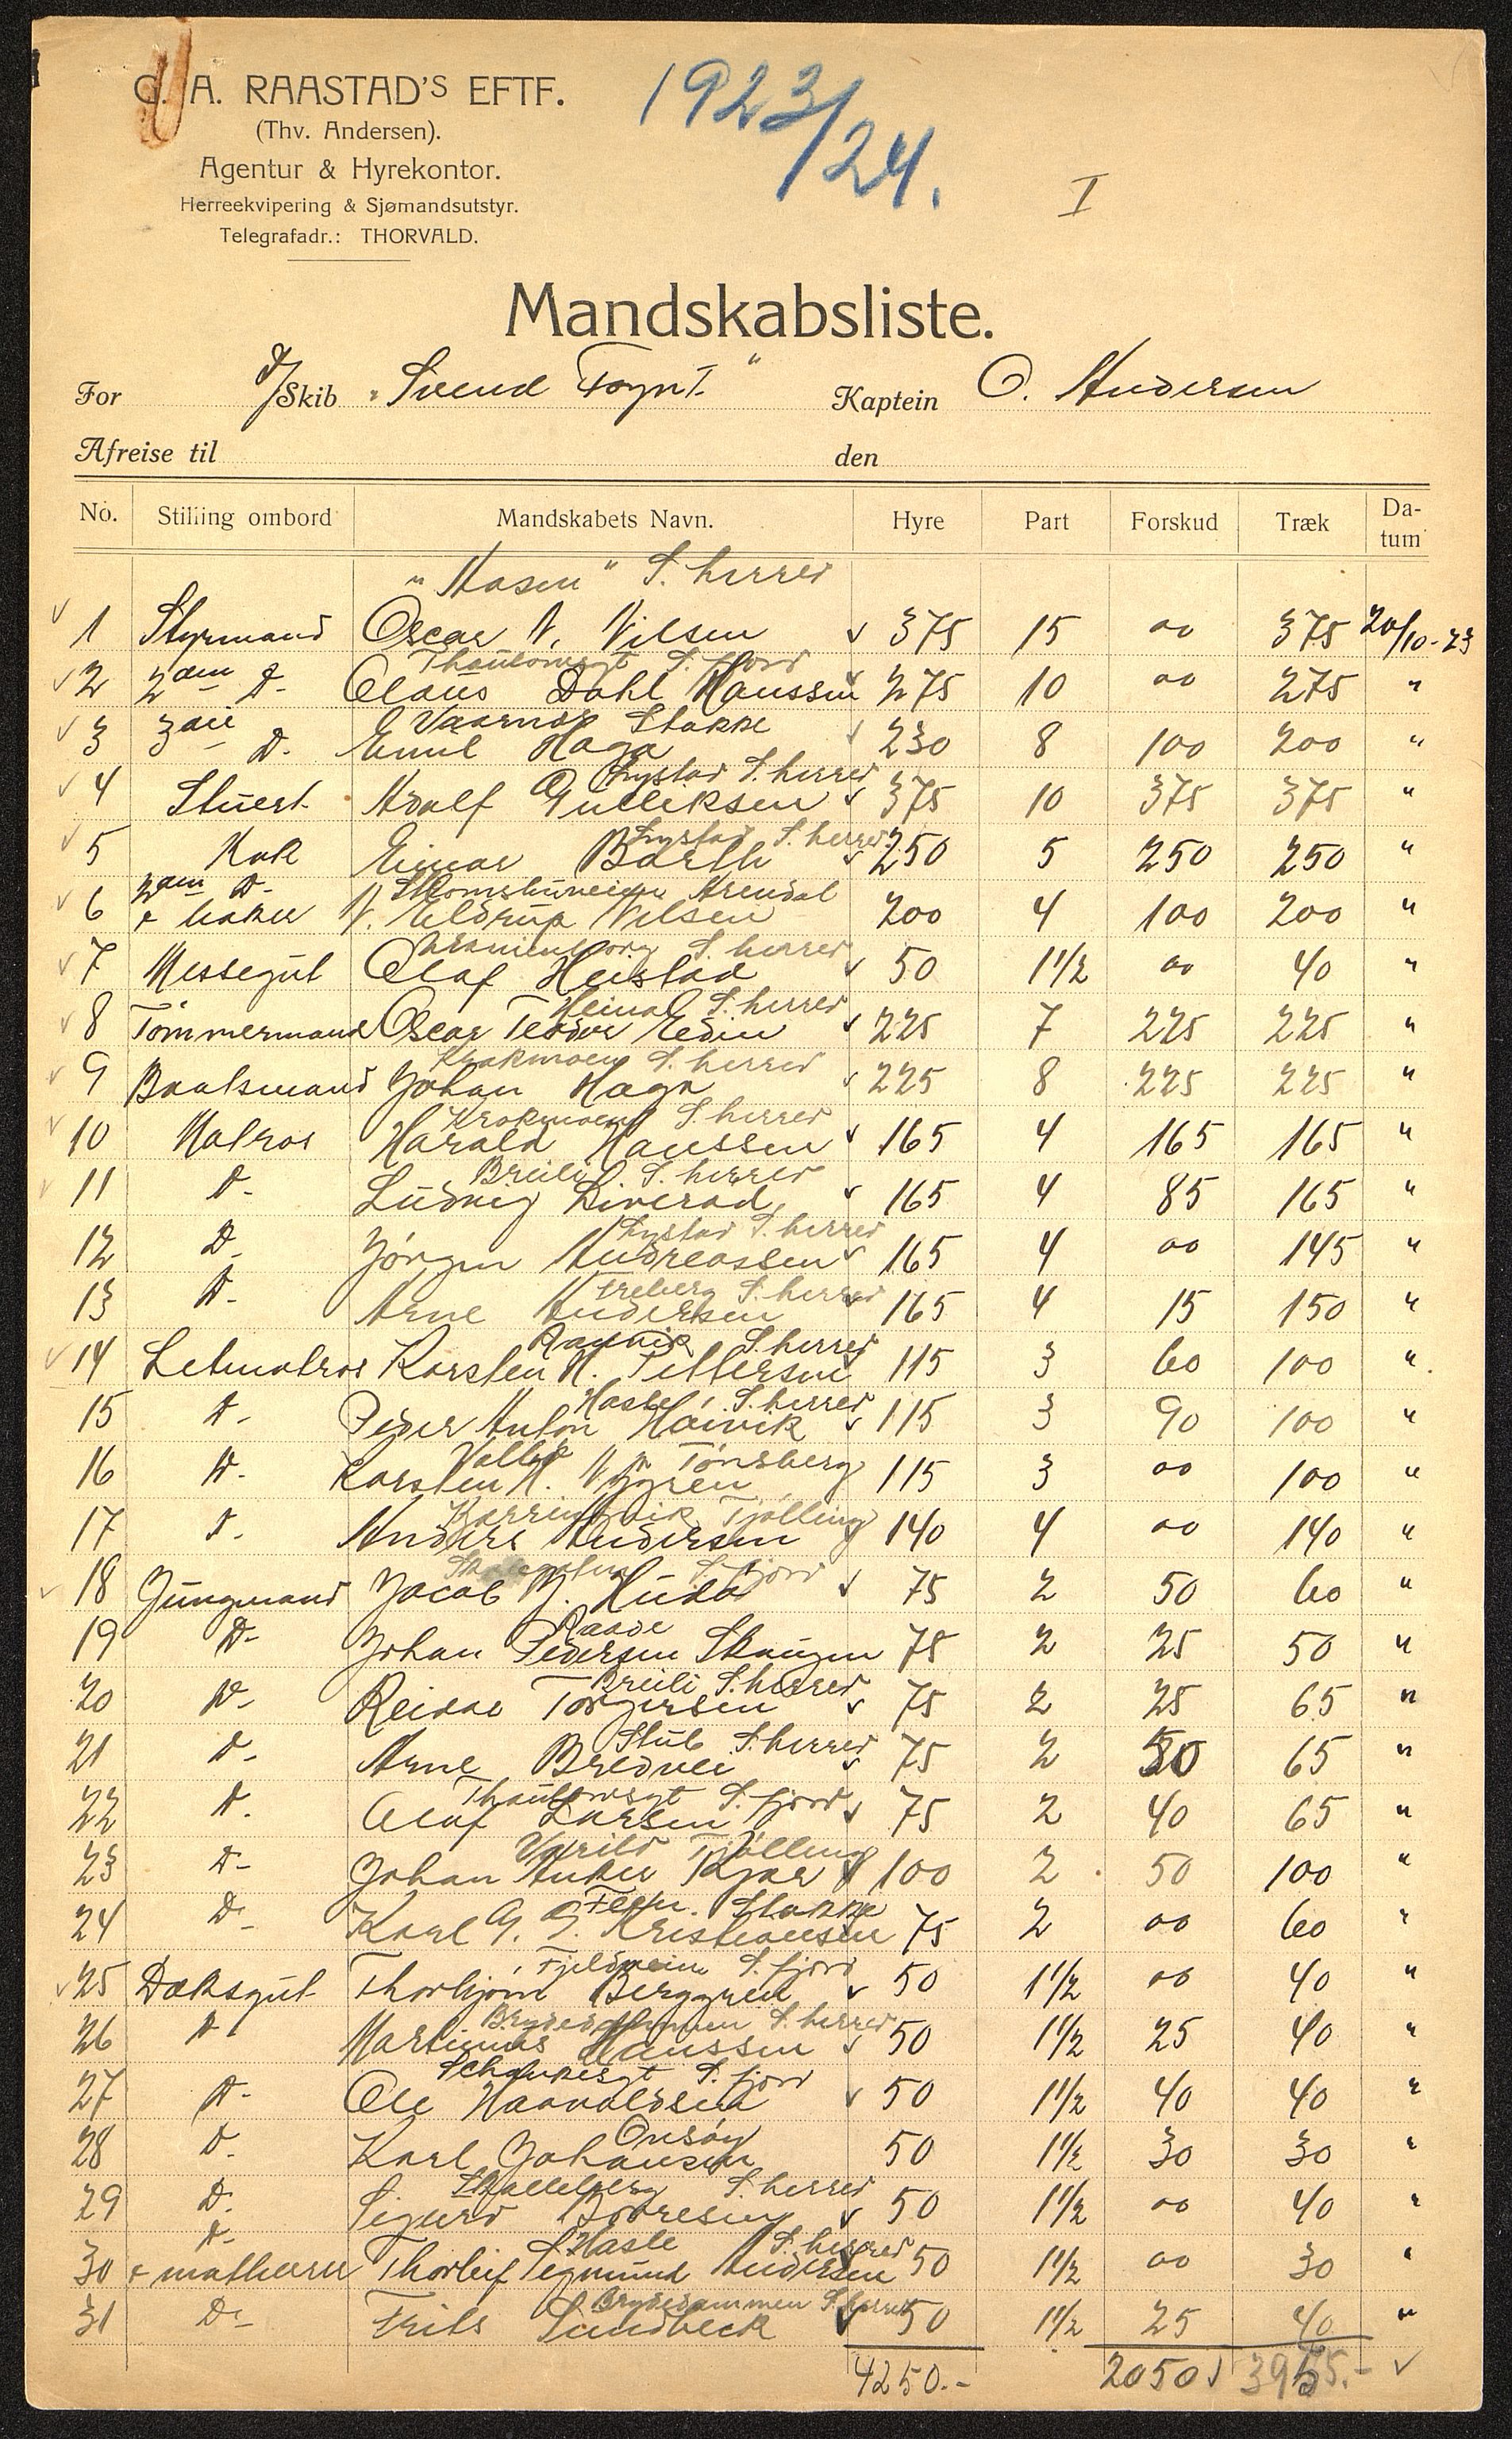 C. A. RAASTAD'S EFTF.
(Thv. Andersen).
Agentur & Hyrekontor.
Herreekvipering & Sjømandsutstyr.
Telegrafadr.: THORVALD.
1923/24.
I
Mandskabsliste.
For d/Skib "Svend Foyn I." Kaptein O. Andersen
Afreise til den
No. Stilling ombord Mandskabets Navn. Hyre Part Forskud Træk Da-tum
"Aasen" S. herred
1 Styrmand Oscar N. Nilsen 375 15 00 375 20/10-23
Thaulowsgt S. fjord
2 2den D- Claus Dahl Hanssen 275 10 00 275 "
Stokke
3 3die D. Emil Haga 230 8 100 200 "
Lystad S. herred
4 Stuert Adolf Gulliksen 375 10 375 375 "
Lystad S. herred
5 Kok Einar Barth 250 5 250 250 "
Arendal
6 2den D- & baker N. Eldrup Nilsen 200 4 100 200 "
S. herred
7 Messegut Olaf Heistad 50 1 1/2 00 40 "
S. herred
8 Tømmermand Oscar Teodor Edin 225 7 225 225 "
Krokmoen S. herred
9 Baatsmand Johan Haga 225 8 225 225 "
Krokmoen S. herred
10 Matros Harald Hanssen 165 4 165 165 "
Breili S. herred
11 D- Ludvig Liverød 165 4 85 165 "
Lystad S. herred
12 D- Jörgen Andreassen 165 4 00 145 "
S. herred
13 D- Arne Andersen 165 4 15 150 "
Ranvik S. herred
14 Letmatros Karsten H. Pettersen 115 3 60 100 "
Hasle S. herred
15 D- Peder Anton Håvik 115 3 90 100 "
Vallø Tønsberg
16 D- Karsten H. Nygren 115 3 00 100 "
Tjølling
17 D. Anders Andersen 140 4 00 140 "
S. fjord
18 Jungmand Jacob M. 75 2 50 60 "
Raade
19 D- Johan Pedersen Skaugen 75 2 25 50 "
Breili S. herred
20 D- Reidar Torgersen 75 2 25 65 "
Stub S. herred
21 D- Arne Bredvei 75 2 50 65 "
Thaulowsgt S. fjord
22 D. Olaf Larsen 75 2 40 65 "
Varild Tjølling
23 D- Johan Anker Kjær 100 2 50 100 "
Stokke
24 D- Karl G. S. Kristiansen 75 2 00 60 "
Fjeldvein S. fjord
25 Dæksgut Thorbjörn Berggren 50 1 1/2 00 40 "
Brydedammen S. herred
26 D- Martinius Hanssen 50 1 1/2 25 40 "
S. fjord
27 D- Ole Haavaldsen 50 1 1/2 40 40 "
Onsøy
28 D. Karl Johansen 50 1 1/2 30 30 "
Skalleberg S. herred
29 D. Sigurd Borresen 50 1 1/2 00 40 "
Hasle S. herred
30 D- & mathuru Thorleif Sigmund Andersen 50 1 1/2 00 30 "
Brydedammen S. herred
31 D- Frits Sundbeck 50 1 1/2 25 40 "
4250.- 2050 3955.-